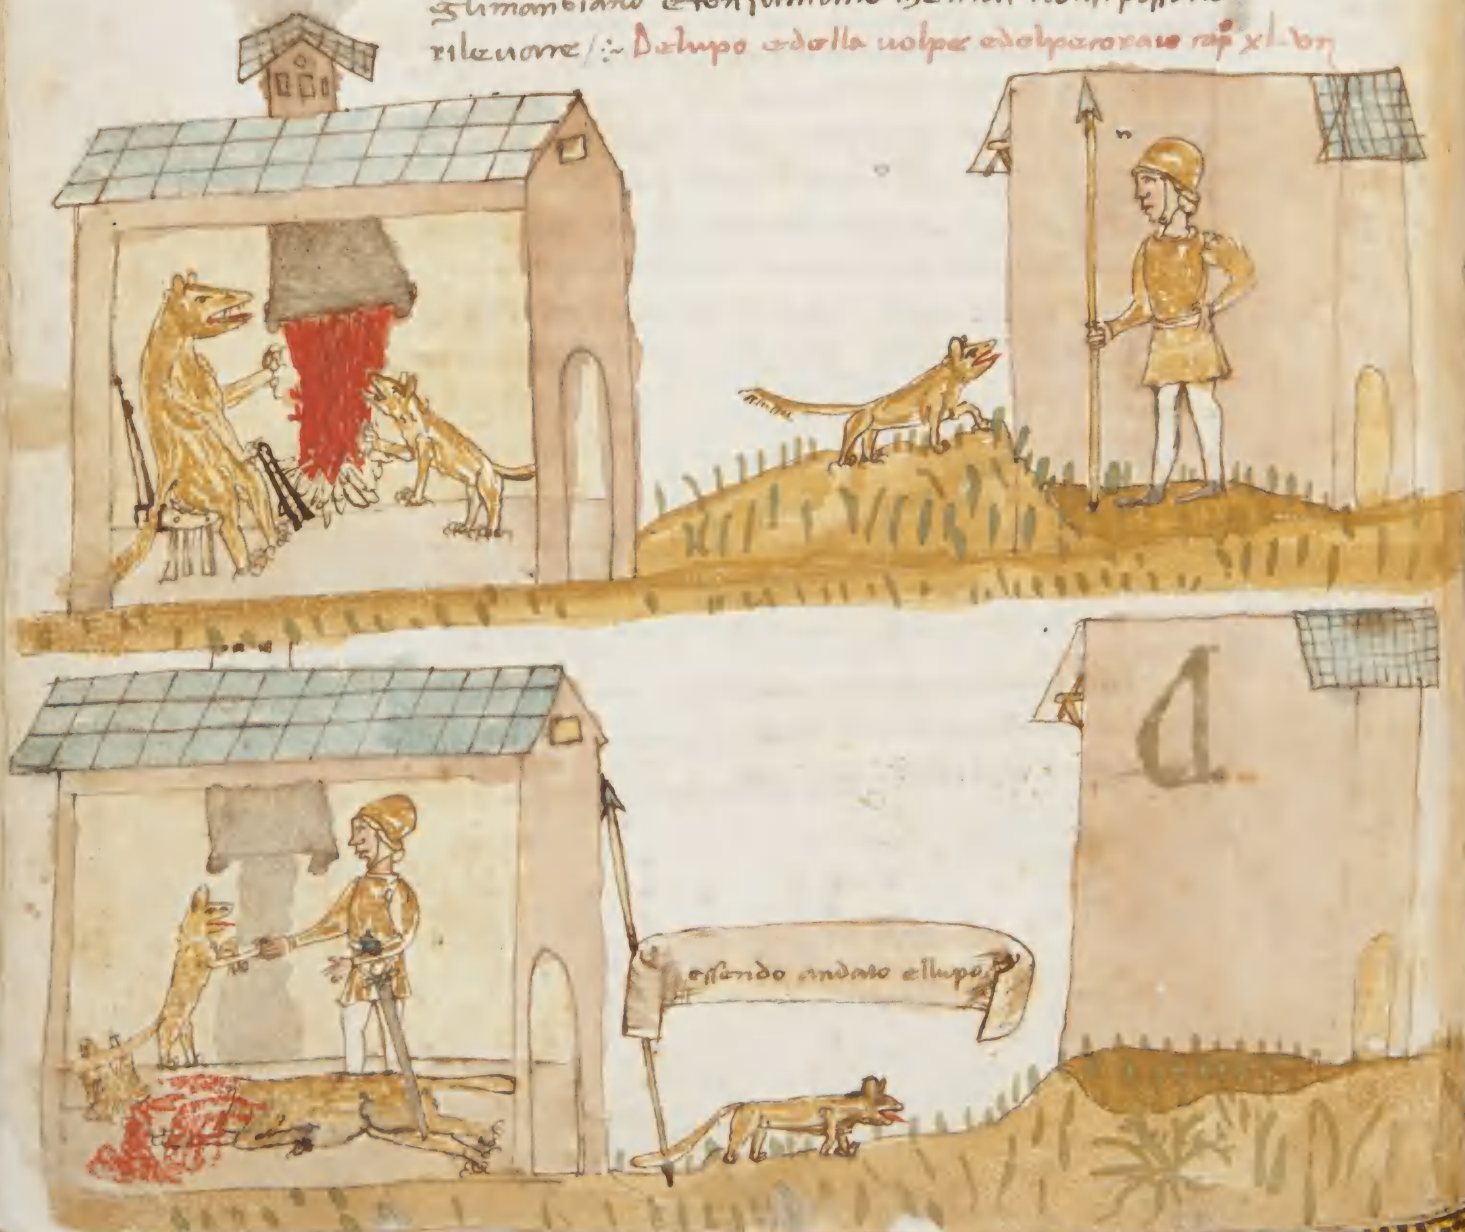 rilevare /:~ Delupo edella uolpe edelpecoraio cap° xlvıı
essendo andato ellupo
d